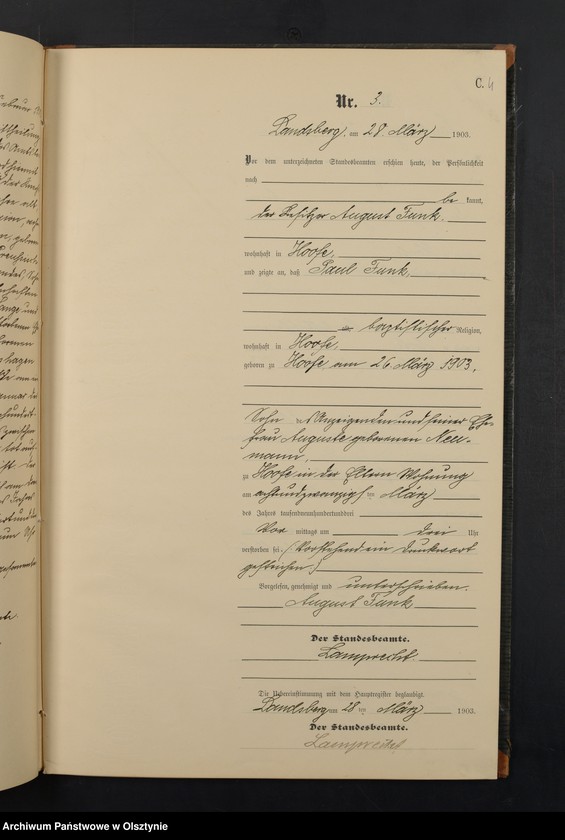 C. 4
Nr. 3.
Landsberg, am 28. März 1903.
Vor dem unterzeichneten Standesbeamten erschien heute, der Persönlichkeit
nach
be kannt,
der Besitzer August Funk
wohnhaft in Hoofe,
und zeigte an, daß Paul Funk,
baptistischer Religion,
wohnhaft in Hoofe,
geboren zu Hoofe am 26. März 1903,
Sohn des Anzeigenden und seiner Ehe-
frau Auguste geborenen Neu-
mann,
zu Hoofe in der Eltern Wohnung
am achtundzwanzigsten März
des Jahres tausendneunhundertunddrei
Vor mittags um drei Uhr
verstorben sei. (Vorstehend ein Druckwort
gestrichen.)
Vorgelesen, genehmigt und unterschrieben.
August Funk
Der Standesbeamte.
Lamprecht.
Die Uebereinstimmung mit dem Hauptregister beglaubigt.
Landsberg am 28 ten März 1903.
Der Standesbeamte.
Lamprecht
Archiwum Państwowe w Olsztynie